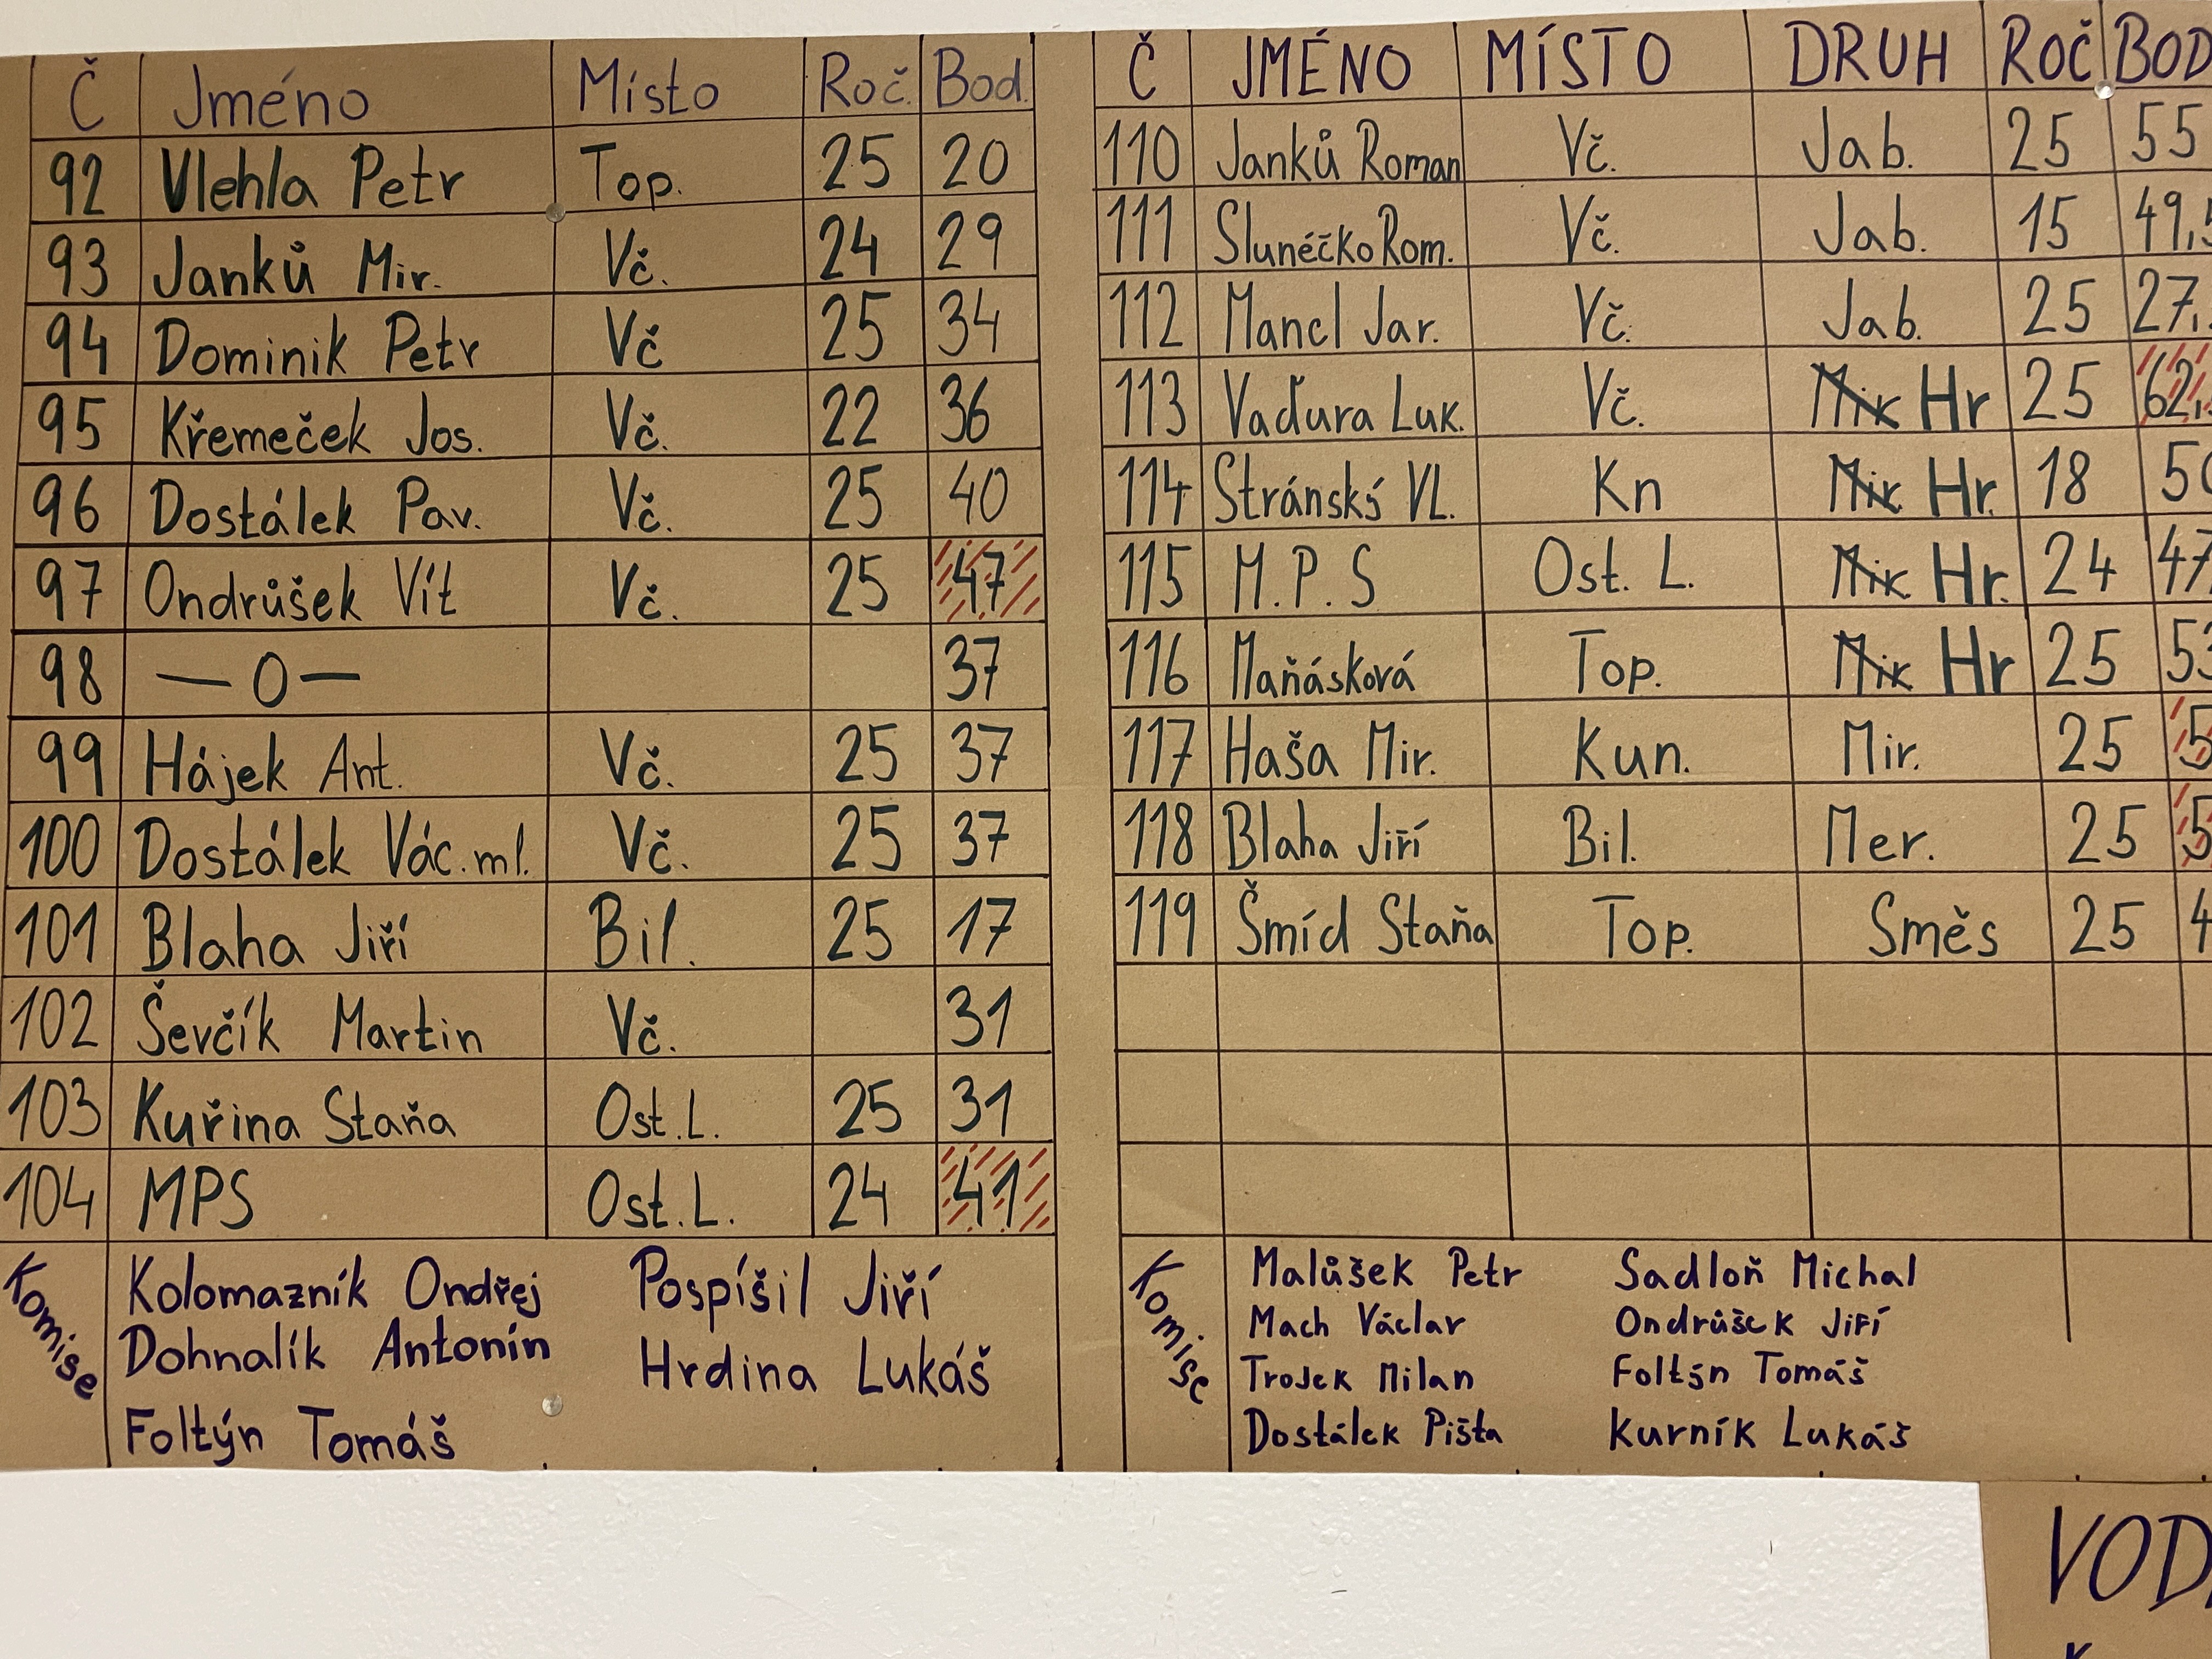 Č Jméno Místo Roč. Bod.
92 Vlehla Petr Top. 25 20
93 Janků Mir. Vč. 24 29
94 Dominik Petr Vč 25 34
95 Křemeček Jos. Vč. 22 36
96 Dostálek Pav. Vč. 25 40
97 Ondrůšek Vít Vč. 25 47
98 — 0 — 37
99 Hájek Ant. Vč. 25 37
100 Dostálek Vác. ml. Vč. 25 37
101 Blaha Jiří Bil. 25 17
102 Ševčík Martin Vč. 31
103 Kuřina Staňa Ost. L. 25 31
104 MPS Ost. L. 24 41
Komise
Kolomazník Ondřej Pospíšil Jiří
Dohnalík Antonín Hrdina Lukáš
Foltýn Tomáš
Č JMÉNO MÍSTO DRUH ROČ BOD
110 Janků Roman Vč. Jab. 25 55
111 Slunéčko Rom. Vč. Jab. 15 49,5
112 Mancl Jar. Vč. Jab. 25 27,
113 Vaďura Luk. Vč. Mix Hr 25 62,
114 Stránský Vl. Kn Mix Hr. 18 50
115 M. P. S Ost. L. Mix Hr. 24 47
116 Maňásková Top. Mix Hr 25 53
117 Haša Mir. Kun. Mir. 25 5
118 Blaha Jiří Bil. Mer. 25 5
119 Šmíd Staňa Top. Směs 25 4
Komise
Malůšek Petr Sadloň Michal
Mach Václav Ondrůšek Jiří
Trojek Milan Foltýn Tomáš
Dostálek Pišta Kurník Lukáš
VOD